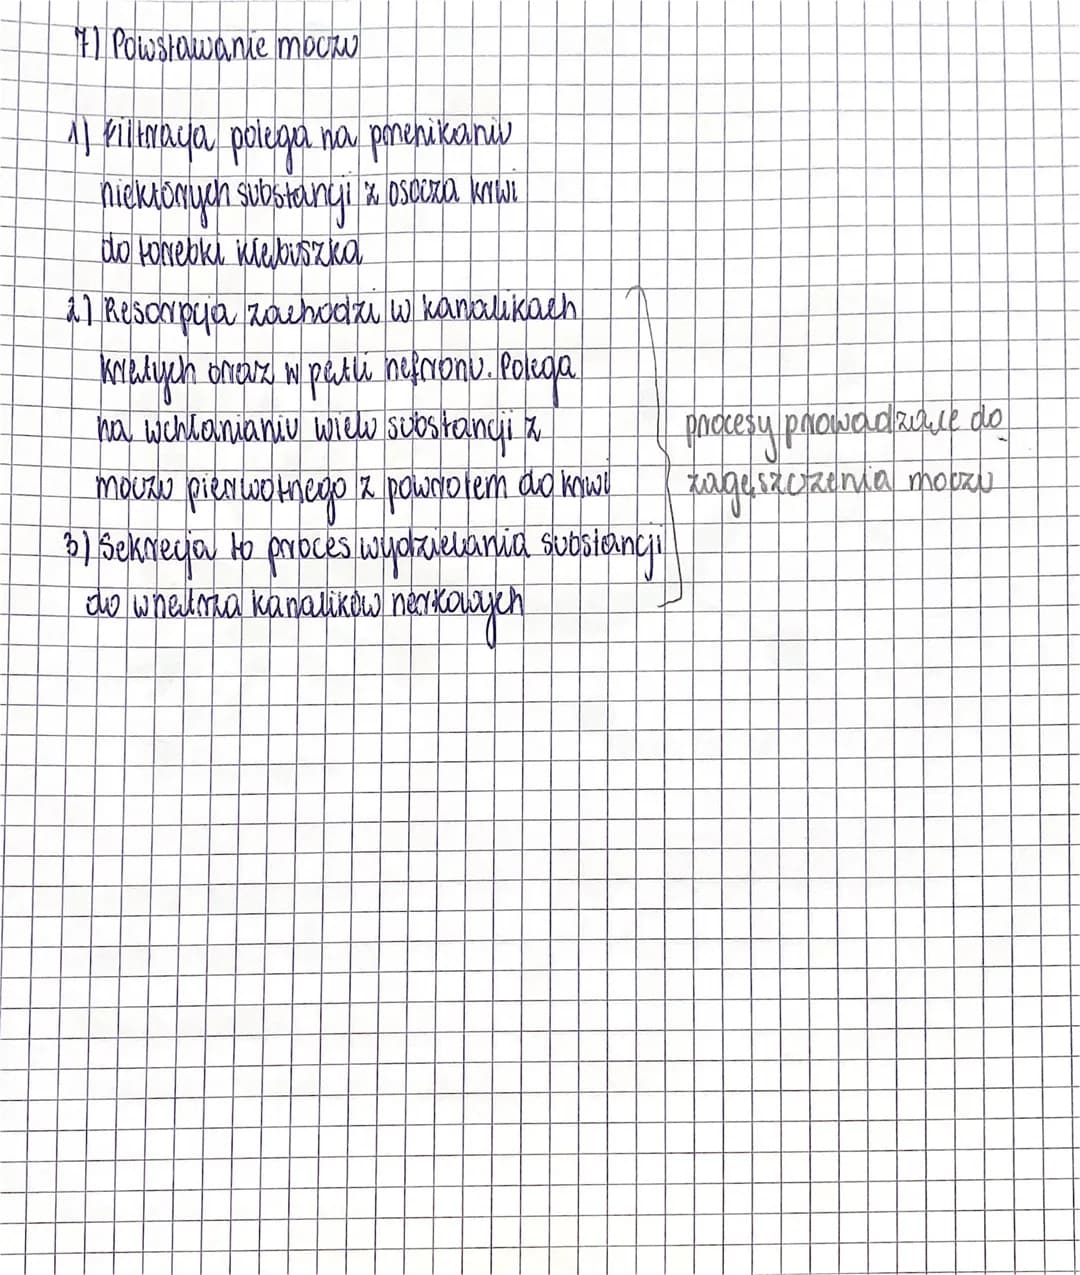 7) Powstawanie moczu
1) Filtracja polega na przenikaniu
niektórych substancji z osocza krwi
do torebki kłębuszka
2) Resorpcja zachodzi w kanalikach
krętych oraz w pętli nefronu. Polega
na wchłanianiu wielu substancji z
moczu pierwotnego z powrotem do krwi
3) Sekrecja to proces wydzielania substancji
do wnętrza kanalików nerkowych
procesy prowadzące do
zagęszczenia moczu